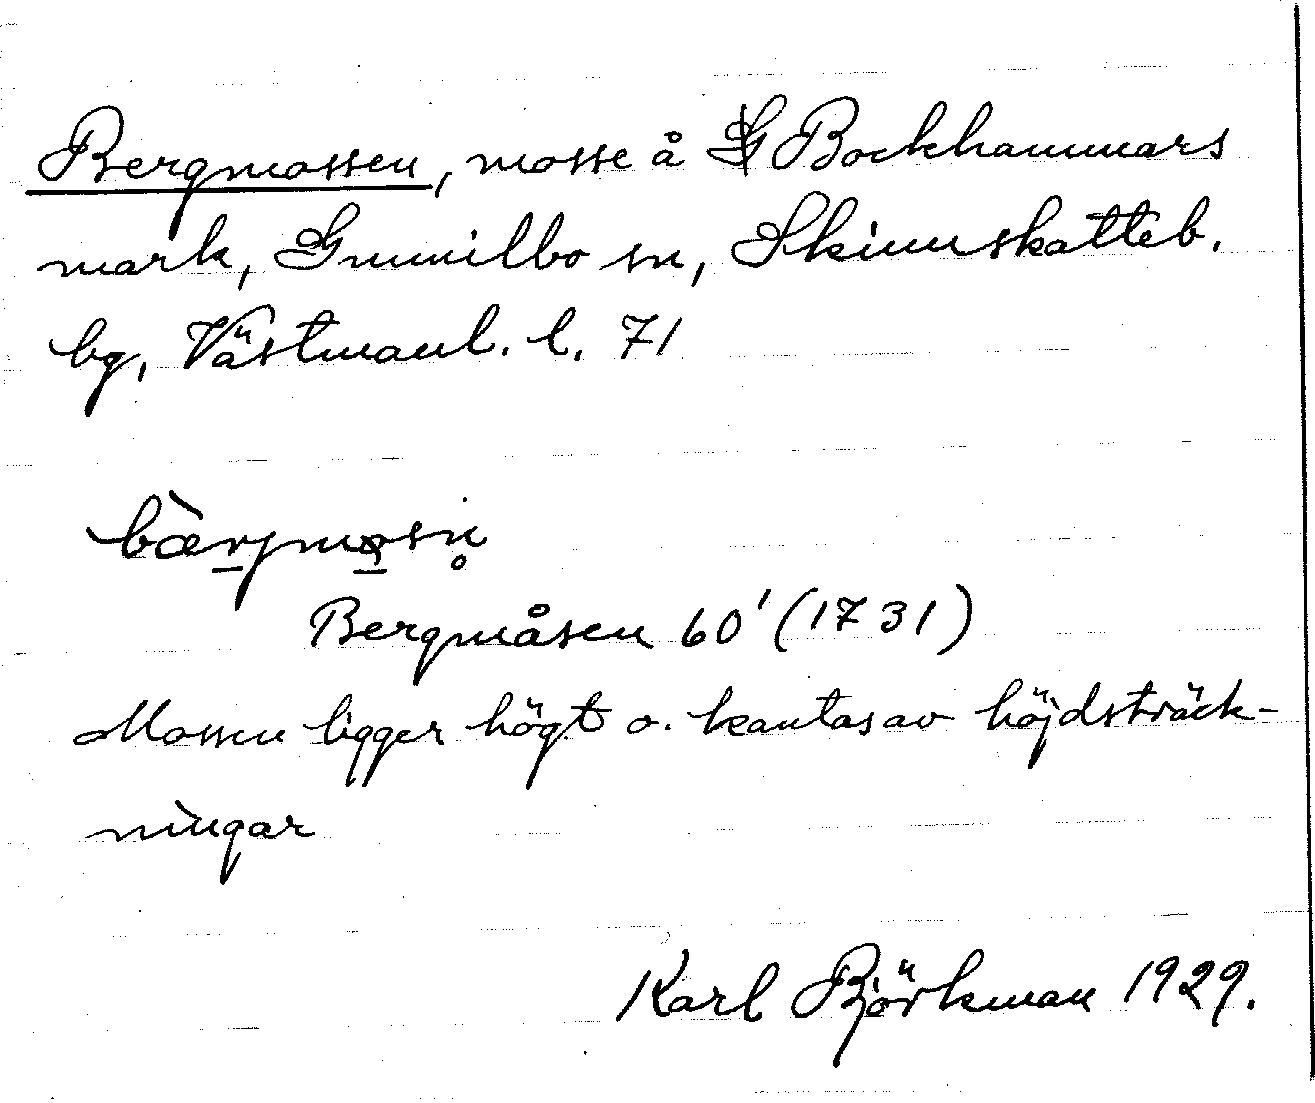 Bergmossen, mosse å Bockhammars
mark, Gunnilbo sn, Skinnskatteb.
bg, Västmanl. l. 71
bæ̀rjmosn̥
Bergmåsen 60' (1731)
Mossen ligger högt o. kantas av höjdsträck-
ningar
Karl Björkman 1929.